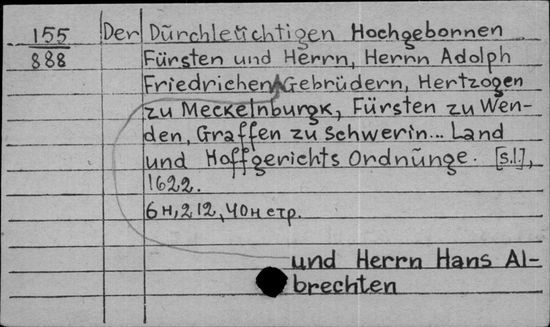 155 Der Dürchleüchtigen Hochgebornen
888 Fürsten und Herrn, Herrn Adolph
Friedrichen Gebrüdern, Hertzogen
zu Meckelnburgk, Fürsten zu Wen-
den, Graffen zu Schwerin... Land
und Hoffgerichts Ordnünge. [s.l.],
1622.
6н, 212, 40н стр.
und Herrn Hans Al-
brechten